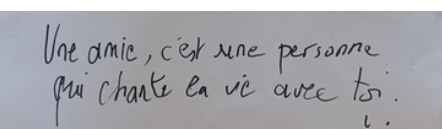 Une amie, c'est une personne
qui chante la vie avec toi.